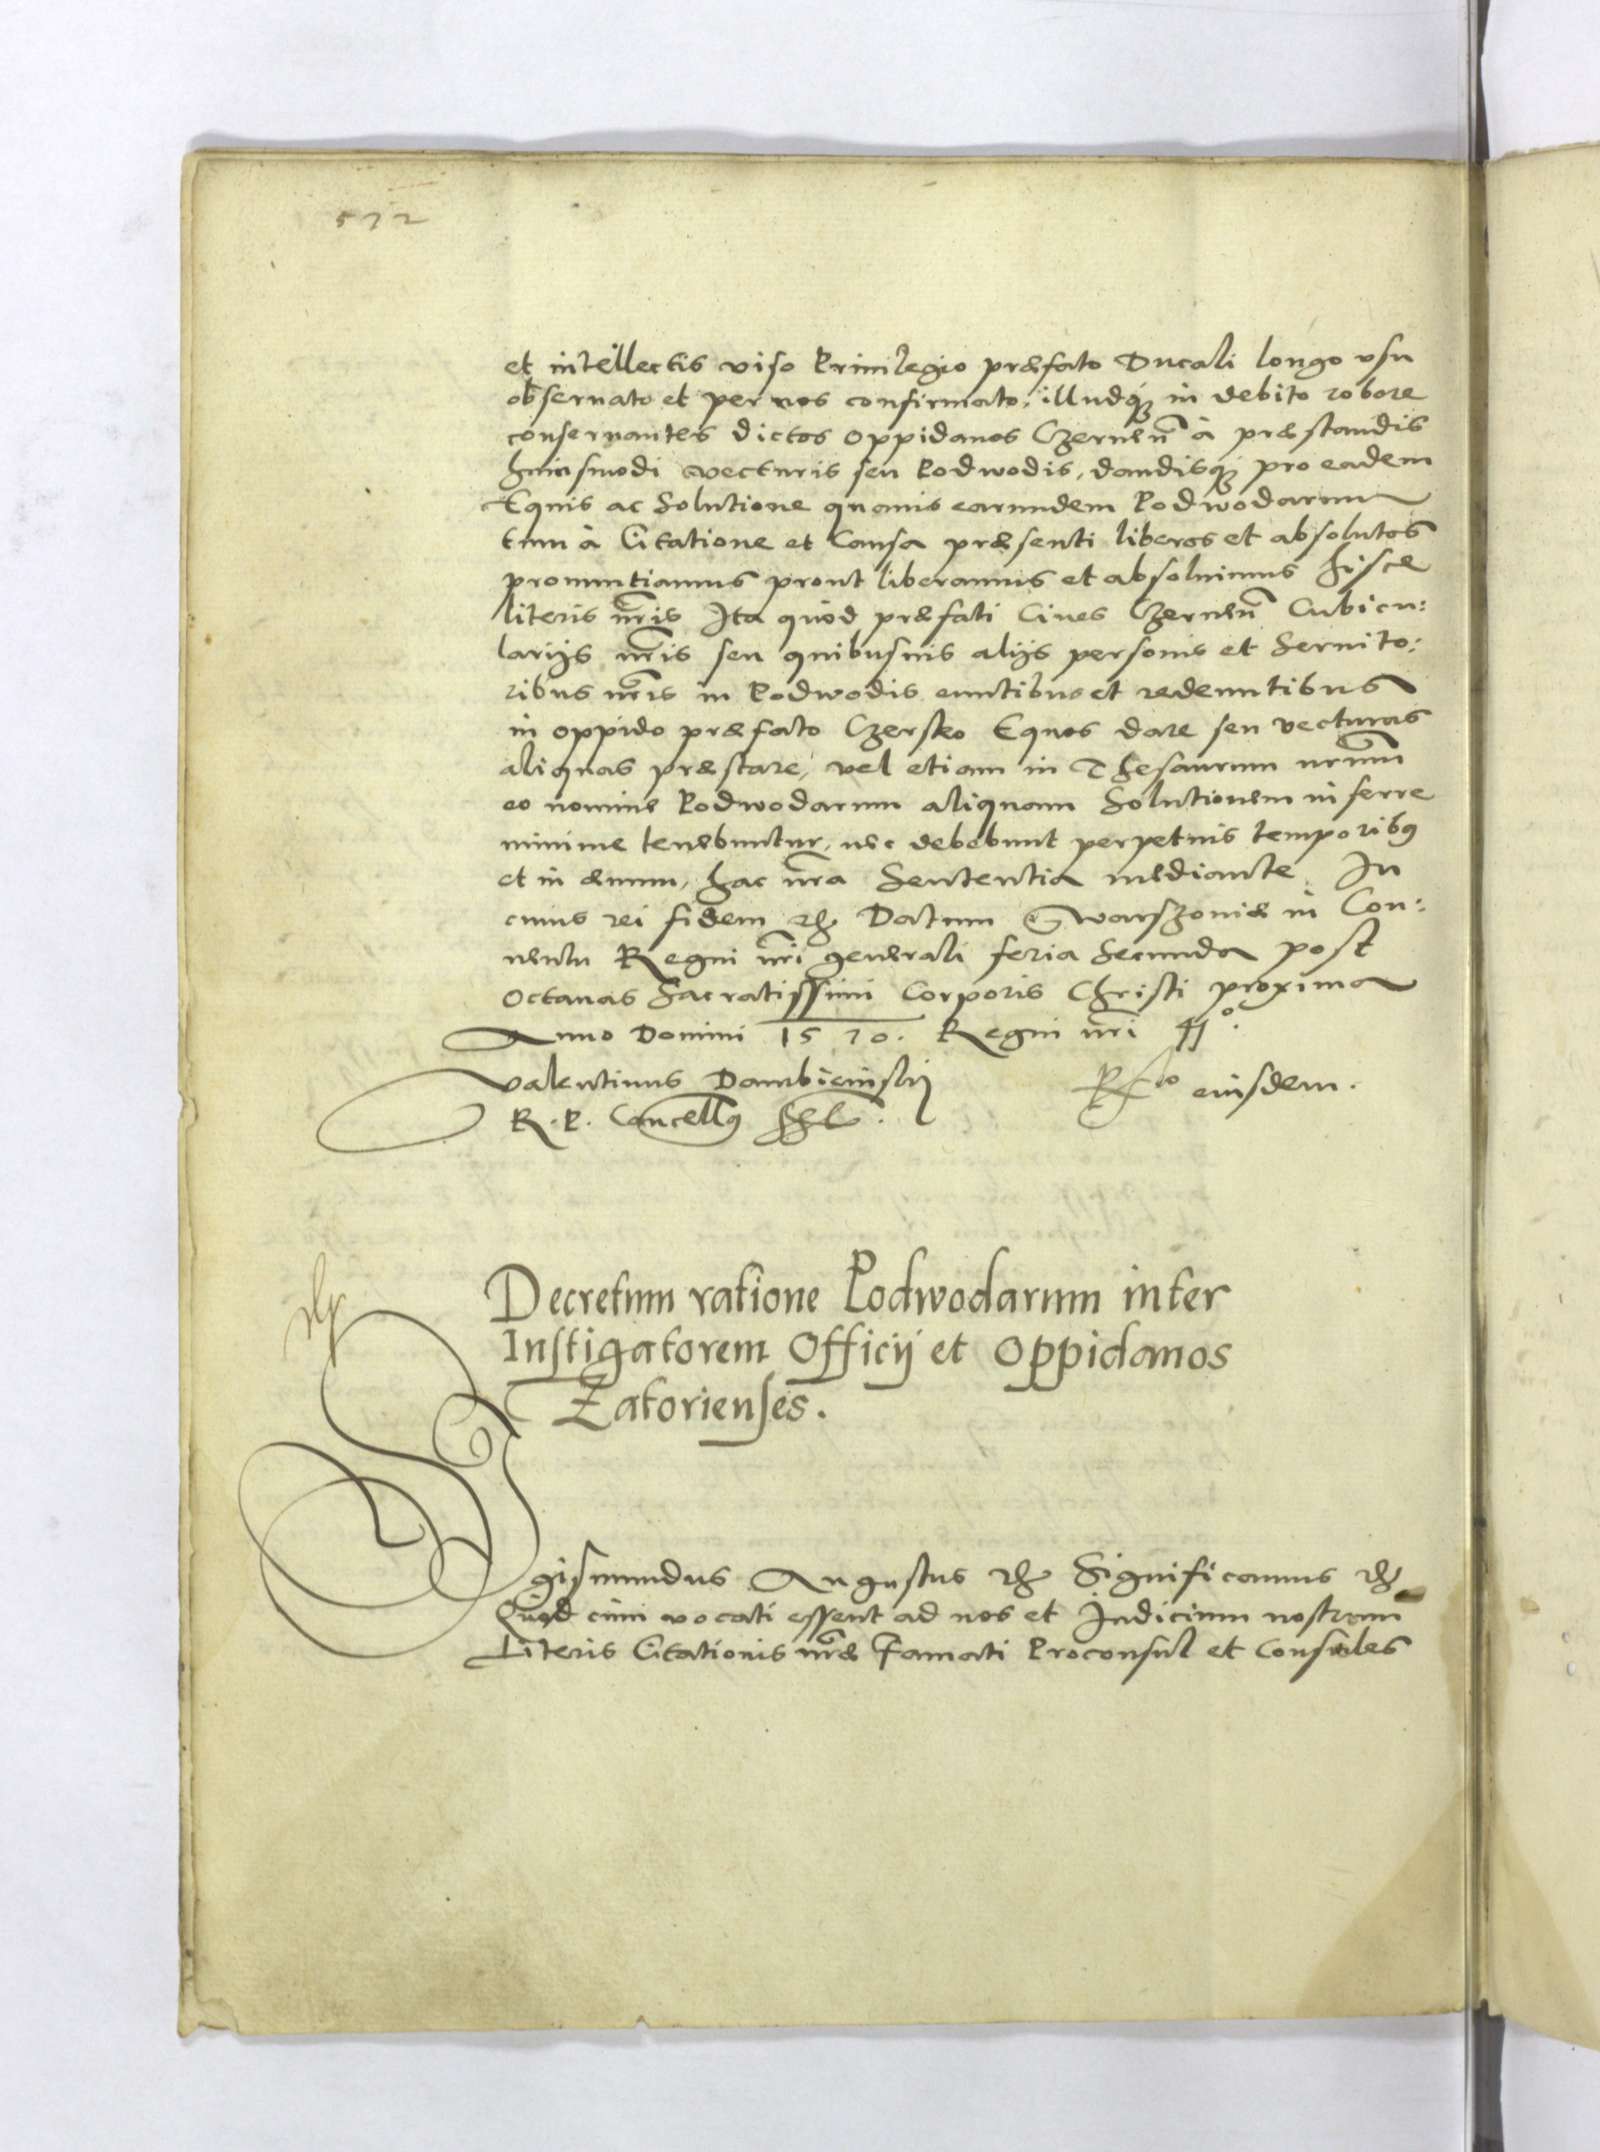 572
et intellectis viso Privilegio præfato Ducali longo vsu
observato et per nos confirmato, illudq3 in debito robore
conservantes dictos oppidanos Czernen̄ à præstandis
huiusmodi vecturis seu Podwodis, dandisq3 pro eadem
Equis ac Solutione quavis earundem Podwodarum
tum à Citatione et Causa præsenti liberos et absolutos
pronuntiamus prout liberamus et absolvimus hisce
literis nr̄is Ita quòd præfati Cives Czernen̄ Cubicu:
larijs nr̄is seu quibusvis alijs personis et Servito:
ribus nr̄is in Podwodis euntibus et redeuntibus
in oppido præfato Czersko Equos dare seu vecturas
aliquas præstare, vel etiam in Thesaurum nr̄um
eo nomine Podwodarum aliquam Solutionem inferre
minime tenebuntur, nec debebunt perpetuis temporibꝰ
et in ævum, hac nr̄a Sententia mediante. In
cuius rei fidem etc Datum Warszoviæ in Con:
ventu Regni nr̄i generali feria Secunda post
Octavas Sacratissimi Corporis Christi proxima
Anno Domini 1570. Regni nr̄i 41°.
Valentinus Dambieinskij
R. P. Cancellꝰ
eiusdem.
Decretum ratione Podwodarum inter
Instigatorem Officij et Oppidanos
Zatorienses.
Sigismundus Augustus etc Significamus etc
Quod cum vocati essent ad nos et Iudicium nostrum
Literis Citationis nr̄æ Famati Proconsul et Consules